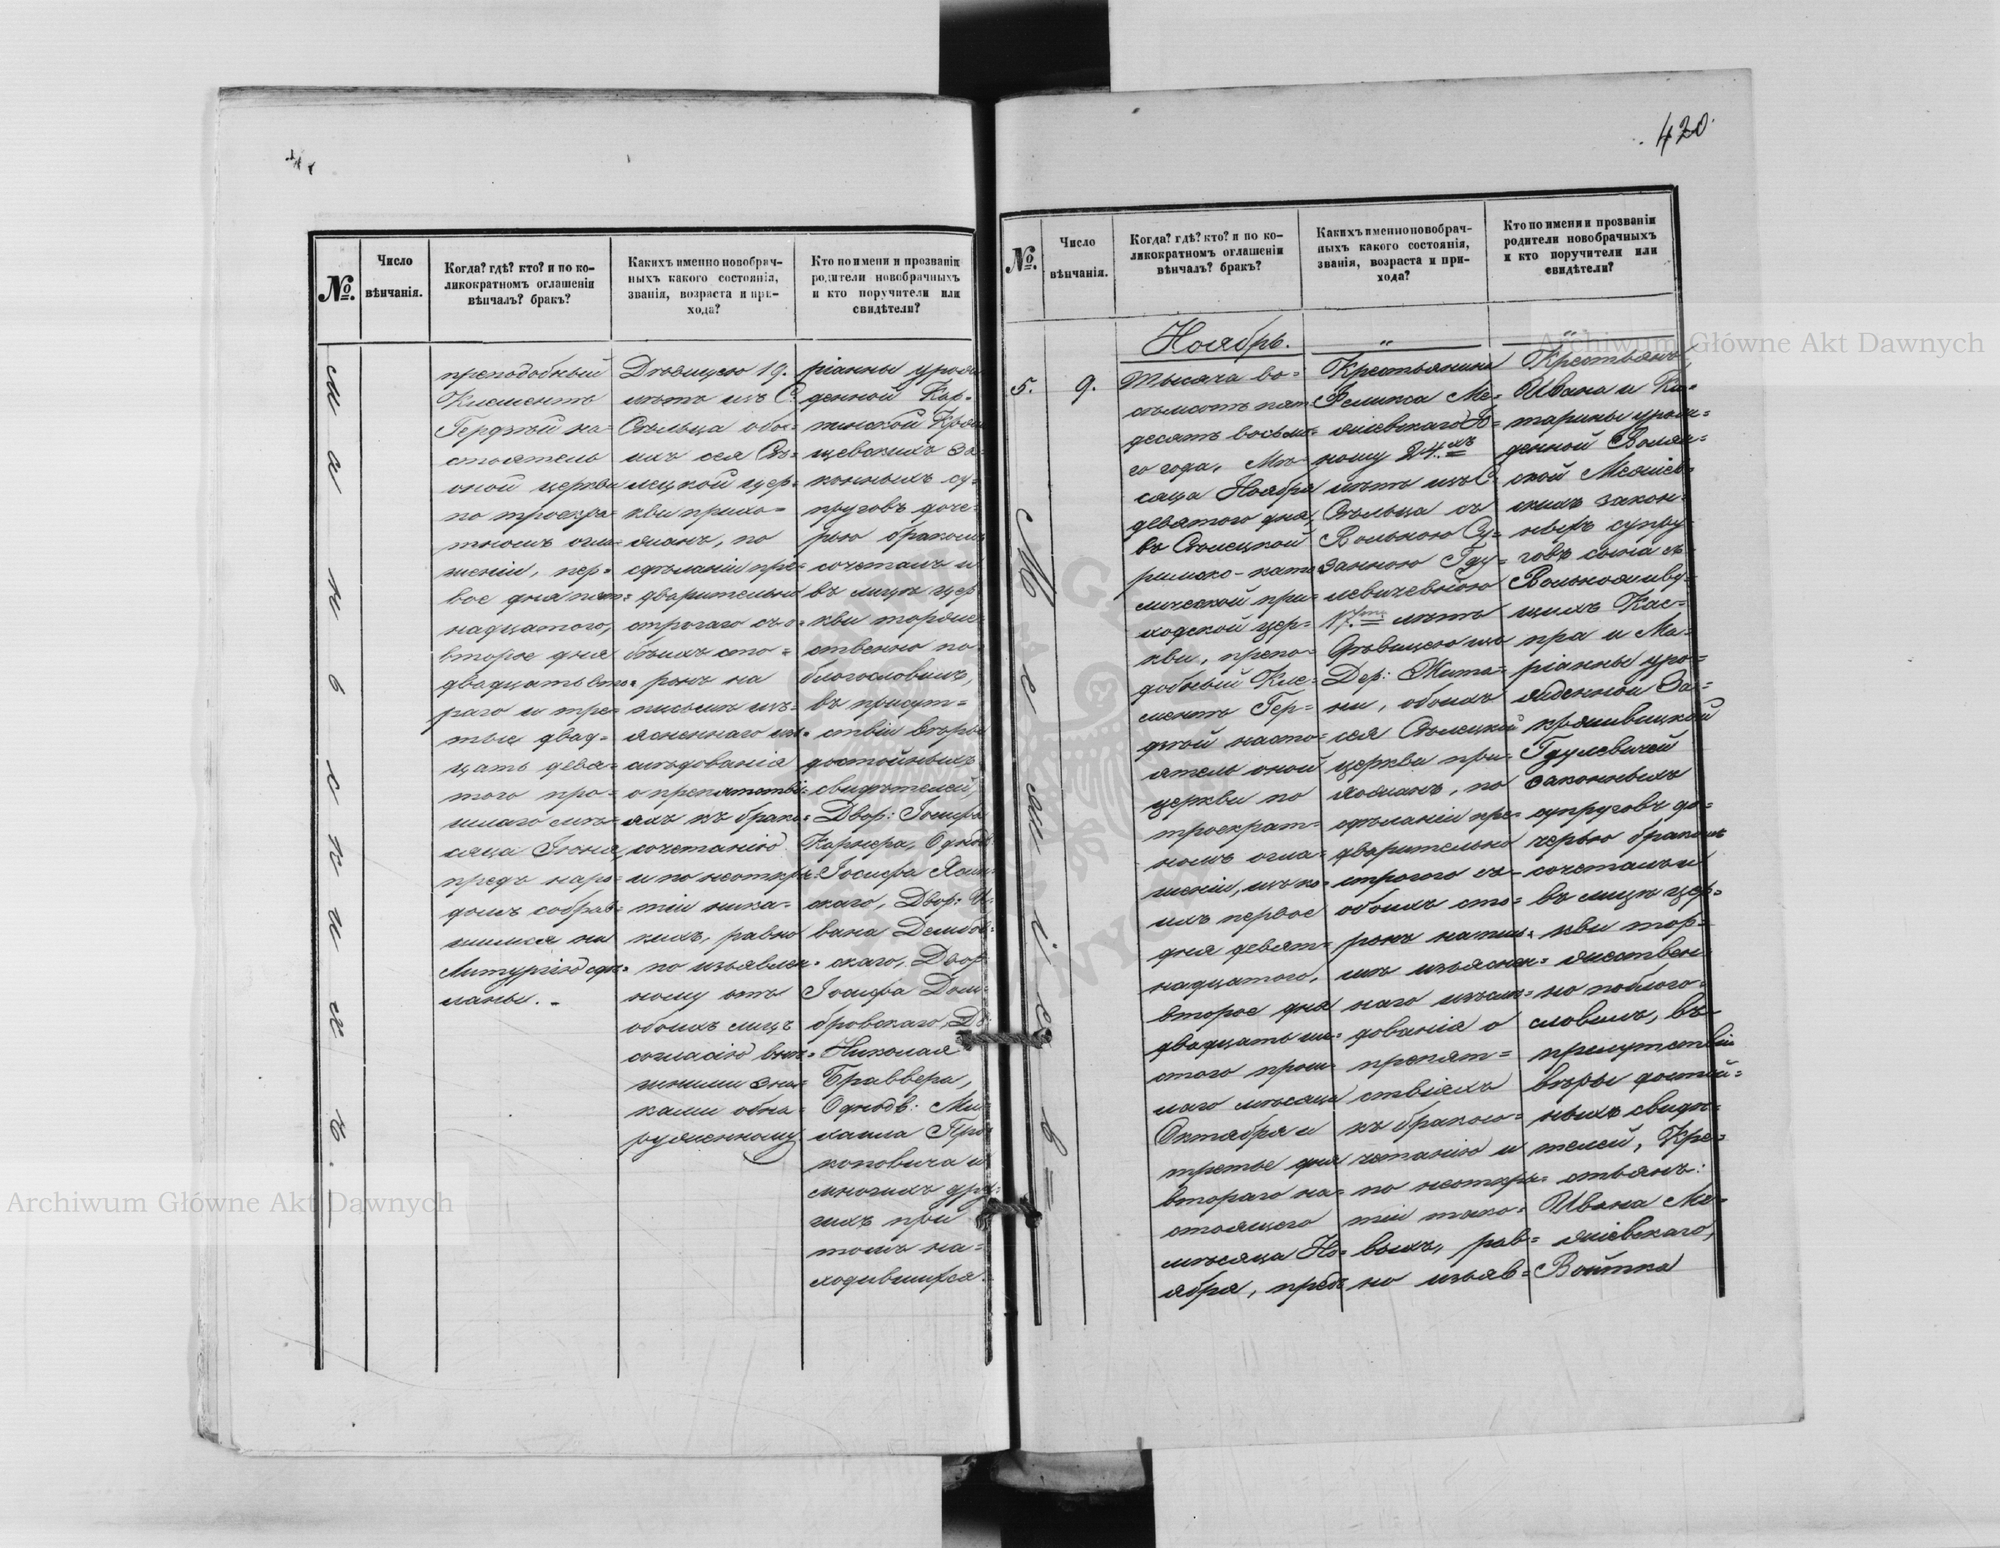 420.
№.
Число
вѣнчанія.
Когда? гдѣ? кто? и по ко-
ликократномъ оглашеніи
вѣнчалъ? бракъ?
Какихъ именно новобрач-
ныхъ какого состоянія,
званія, возраста и при-
хода?
Кто по имени и прозванію
родители новобрачныхъ
и кто поручители или
свидѣтели?
преподобный
Климентъ
Гердзѣй на-
стоятель
оной церкви
по троекра-
тномъ огла-
шеніи, пер-
вое дня пят-
надцатого,
второе дня
двадцать вто-
раго и тре-
тье двад-
цать девя-
того про-
шлаго мѣ-
сяца Іюня
предъ наро-
домъ собрав-
шимся на
Литургію сдѣ-
ланы.
Дѣвицею 19.
лѣтъ изъ С.
Стѣльца обо-
ихъ сея
лецкой цер-
кви прихо-
жанъ, по
сдѣланіи пре-
дварительно
строгаго съ о-
боихъ сто-
ронъ на
письмѣ изъ-
ясненнаго из-
слѣдованія
о препятстві-
яхъ къ брако-
сочетанію
и по неоткры-
тіи ника-
кихъ, равно
по изъявлен-
ному отъ
обоихъ лицъ
согласію внѣ-
шними зна-
ками обна-
руженному
ріанны урож
денной Кор-
тинской
щевскихъ за-
конныхъ су-
пруговъ доче-
рью бракомъ
сочеталъ и
въ лицѣ цер
кви торже-
ственно по-
благословилъ,
въ присут-
ствіи вѣры
достойныхъ
свидѣтелей,
Двор: Іосифа
Корнера, Однод:
Іосифа
скаго, Двор: И-
вана Дембов-
скаго, Двор
Іосифа Дом-
бровскаго, Дв:
Николая
Браввера,
Однодв: Ми-
хаила Про-
коповича и
многихъ дру-
гихъ при
томъ на-
ходившихся.
№.
Число
вѣнчанія.
Когда? гдѣ? кто? и по ко-
ликократномъ оглашеніи
вѣнчалъ? бракъ?
Какихъ именно новобрач-
ныхъ какого состоянія,
званія, возраста и при-
хода?
Кто по имени и прозванію
родители новобрачныхъ
и кто поручители или
свидѣтели?
5.
9.
Ноябрь.
Тысяча во-
сьмсотъ пять
десятъ восьма-
го года, Мѣ-
сяца Ноября
девятого дня,
въ Стѣлецкой
римско-като
лической при-
ходской цер-
кви, препо-
добный Кли-
ментъ Гер-
дзѣй насто-
ятель оной
церкви по
троекрат-
номъ огла-
шеніи, изъ ко-
ихъ первое
дня девят-
надцатого,
второе дня
двадцать ше-
стого прош-
лаго мѣсяца
Октября и
третье дня
втораго на-
стоящего
мѣсяца Но-
ября, предъ
Крестьянина
Феликса Ме-
жіевскаго Ю-
ношу 24.хъ
лѣтъ изъ С.
Стѣльца съ
Вольною Су-
занною Гду-
левичевною
17.ти лѣтъ
Дѣвицею изъ
Дер: Жита-
ни, обоихъ
сея Стѣлецкой
церкви при-
хожанъ, по
сдѣланіи пре-
дварительно
строгого съ
обоихъ сто-
ронъ на пись-
мѣ изъяснен-
наго изслѣ-
дованія о
препят-
ствіяхъ
къ бракосо-
четанію и
по неоткры-
тіи тако-
выхъ, рав-
но изъяв-
Крестьянъ
Ивана и Ка-
тарины урож-
денной Волян-
ской Межіев-
скихъ закон-
ныхъ супру-
говъ сына съ
Вольноживу-
щихъ Кас-
пра и Ма-
ріанны уро-
жденной За-
Гдулевичей
законныхъ
супруговъ до-
черью бракомъ
сочеталъ и
въ лицѣ цер-
кви тор-
жествен-
но поблаго-
словилъ, въ
присутствіи
вѣры достой-
ныхъ свидѣ-
телей, Кре-
стьянъ:
Ивана Ме-
жіевскаго,
Войтка